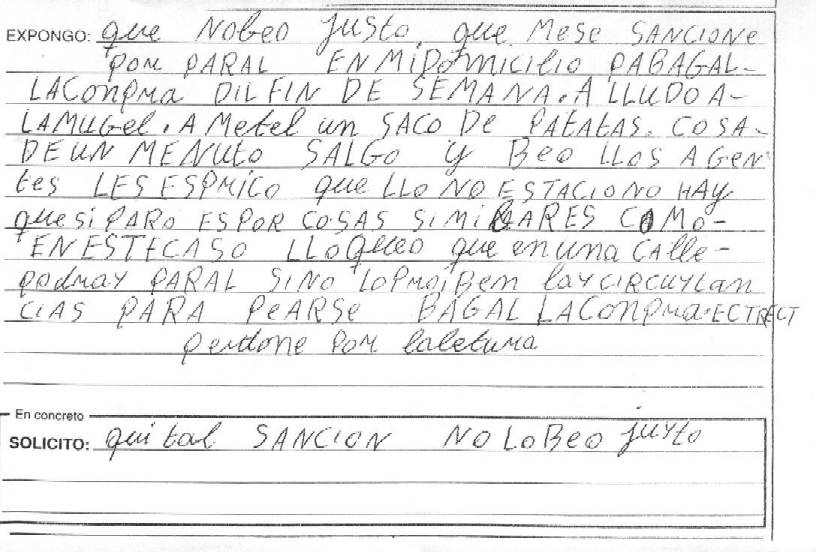 EXPONGO: que NoBeo justo, que MeSe SANCIONe
POR PARAL EN MiDomiciliO PABAGAL-
LAConpra DIL FIN DE SEMANA. A LLUDO A-
LAMUGel. A Metel un SACO De PATATAS. COSA-
DE UN MENUtO SALGO Y BeO LLOS AGen
tes LES ESPRICO que LLO NO ESTACIONO HAY
que Si PARO ES POR COSAS SiMiLARES COMO-
EN ESTE CASO LLO QUeO que en una CAlle-
podray PARAL SiNO LoProiBem layCIRCUYLan
CIAS PARA PeARSe BAGAL LAConpra.ECTRECT
perdone Por laletura
En concreto
SOLICITO: quital SANCION NO LoBeO juyto